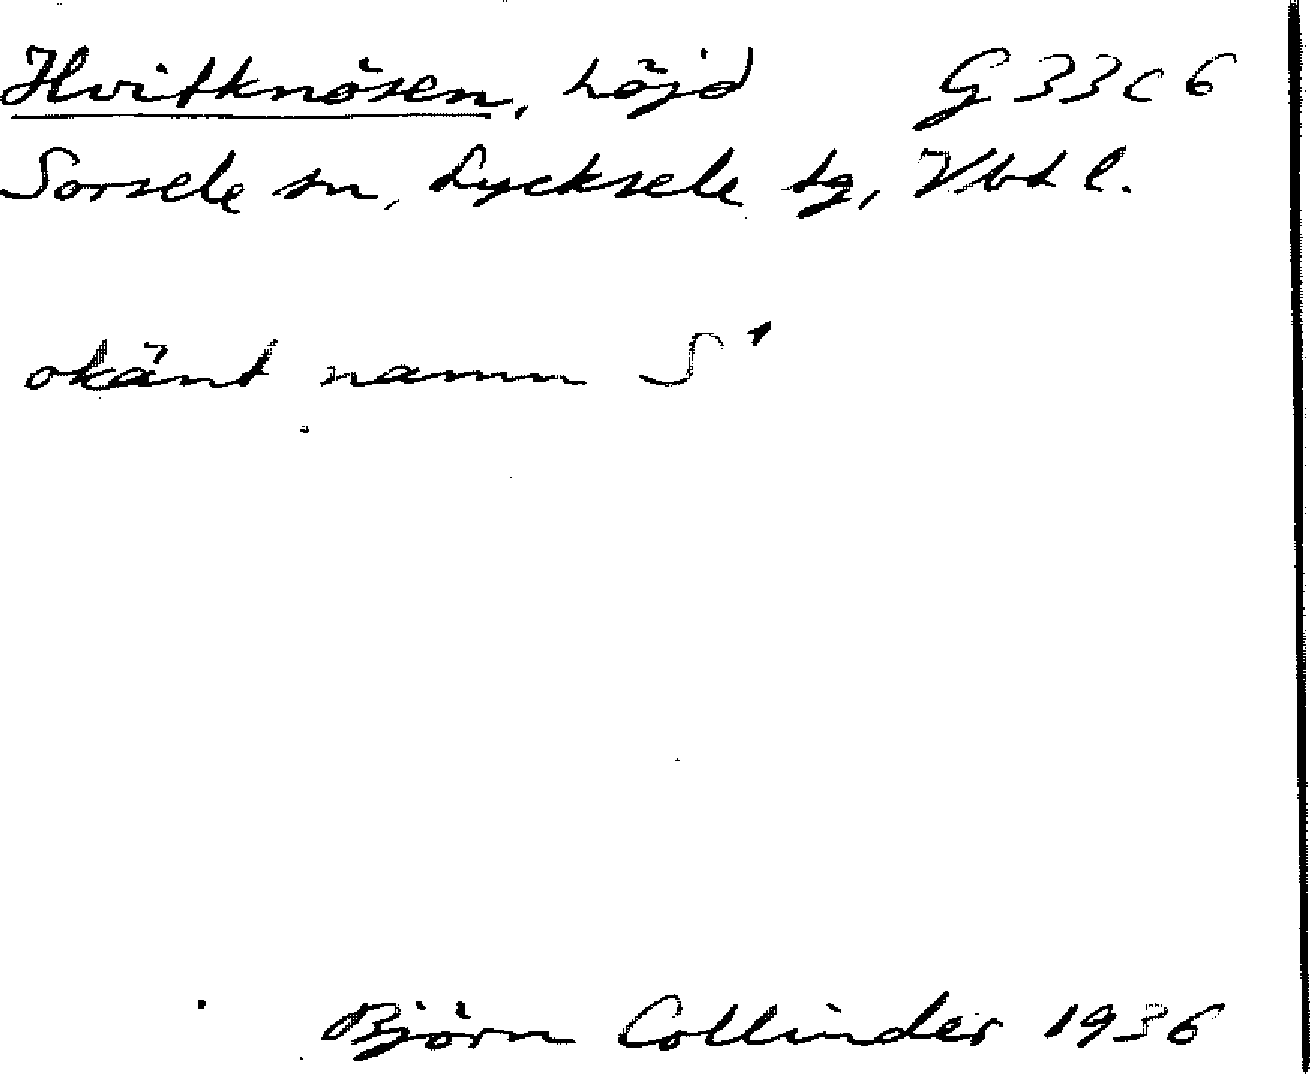 Hvitknösen, höjd G 33 c 6
Sorsele sn, Lycksele tg, Vbtl.
okänt namn S¹
Björn Collinder 1936